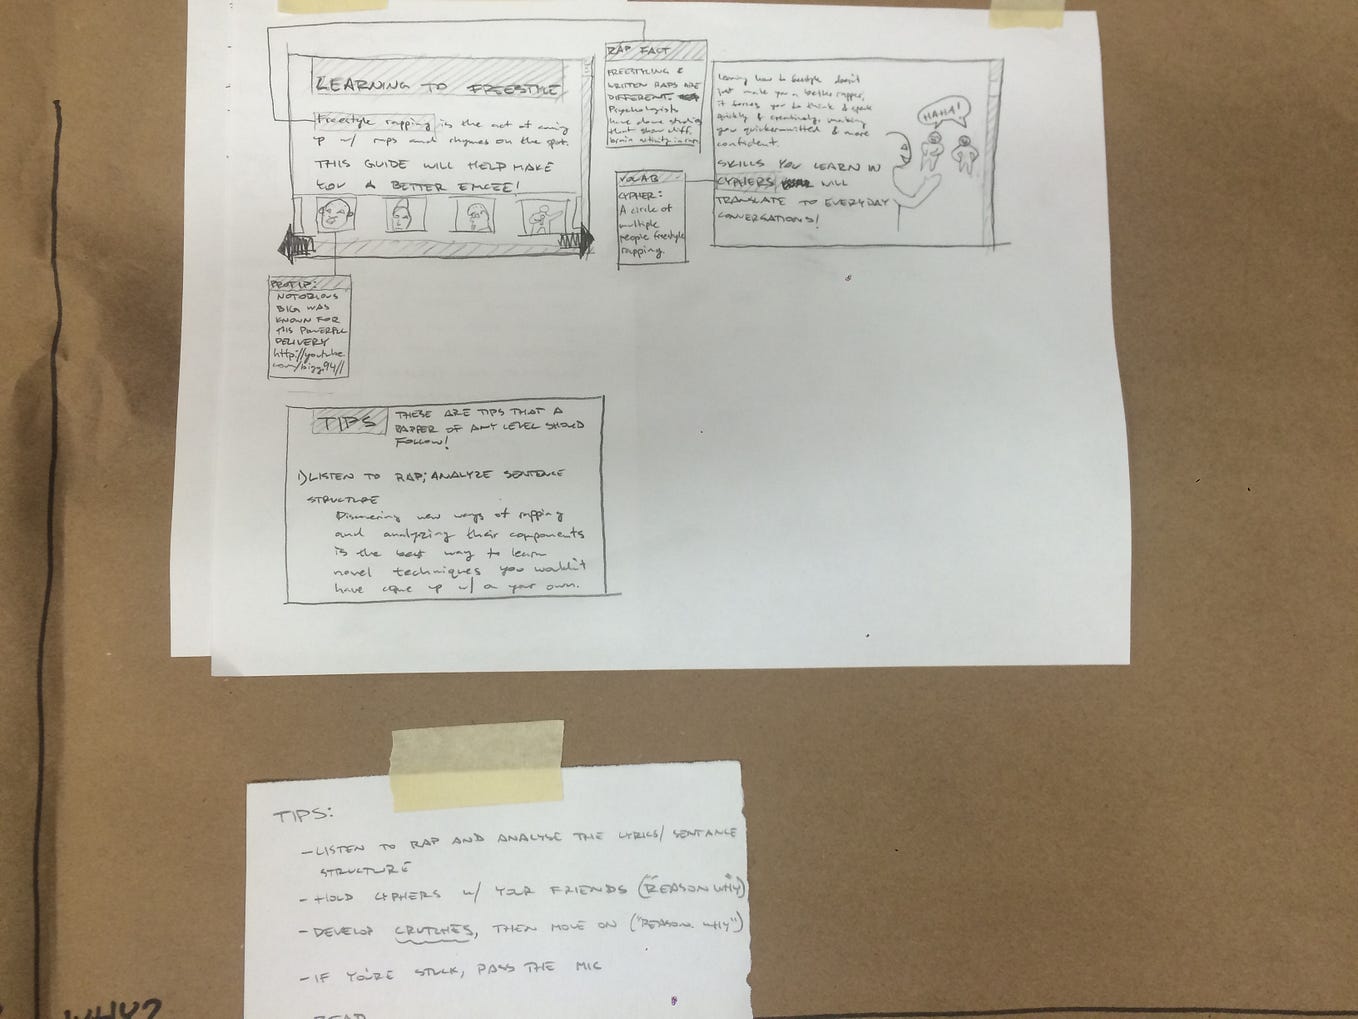 LEARNING TO FREESTYLE
Freestyle rapping is the act of coming
up w/ raps and rhymes on the spot.
THIS GUIDE WILL HELP MAKE
YOU A BETTER EMCEE!
PROTIP:
NOTORIOUS
BIG WAS
KNOWN FOR
HIS POWERFUL
DELIVERY
http://youtube.
com/bigg94//
RAP FACT
FREESTYLING &
WRITTEN RAPS ARE
DIFFERENT.
Psychologists
have done studies
that show diff.
brain activity in
VOCAB
CYPHER:
A circle of
multiple
people freestyle
rapping
Learning how to freestyle doesn't
just make you a better rapper,
it forces you to think & speak
quickly & creatively, making
you quickerwitted & more
confident.
SKILLS YOU LEARN IN
CYPHERS WILL
TRANSLATE TO EVERYDAY
CONVERSATIONS!
HAHA!
TIPS
THESE ARE TIPS THAT A
RAPPER OF ANY LEVEL SHOULD
FOLLOW!
1) LISTEN TO RAP; ANALYZE SENTENCE
STRUCTURE
Discovering new ways of rapping
and analyzing their components
is the best way to learn
novel techniques you wouldn't
have come up w/ on your own.
TIPS:
- LISTEN TO RAP AND ANALYSE THE LYRICS/ SENTANCE
STRUCTURE
- HOLD CYPHERS w/ YOUR FRIENDS ("REASON WHY")
- DEVELOP CRUTCHES, THEN MOVE ON ("REASON WHY")
- IF YOU'RE STUCK, PASS THE MIC
- READ
WHY?